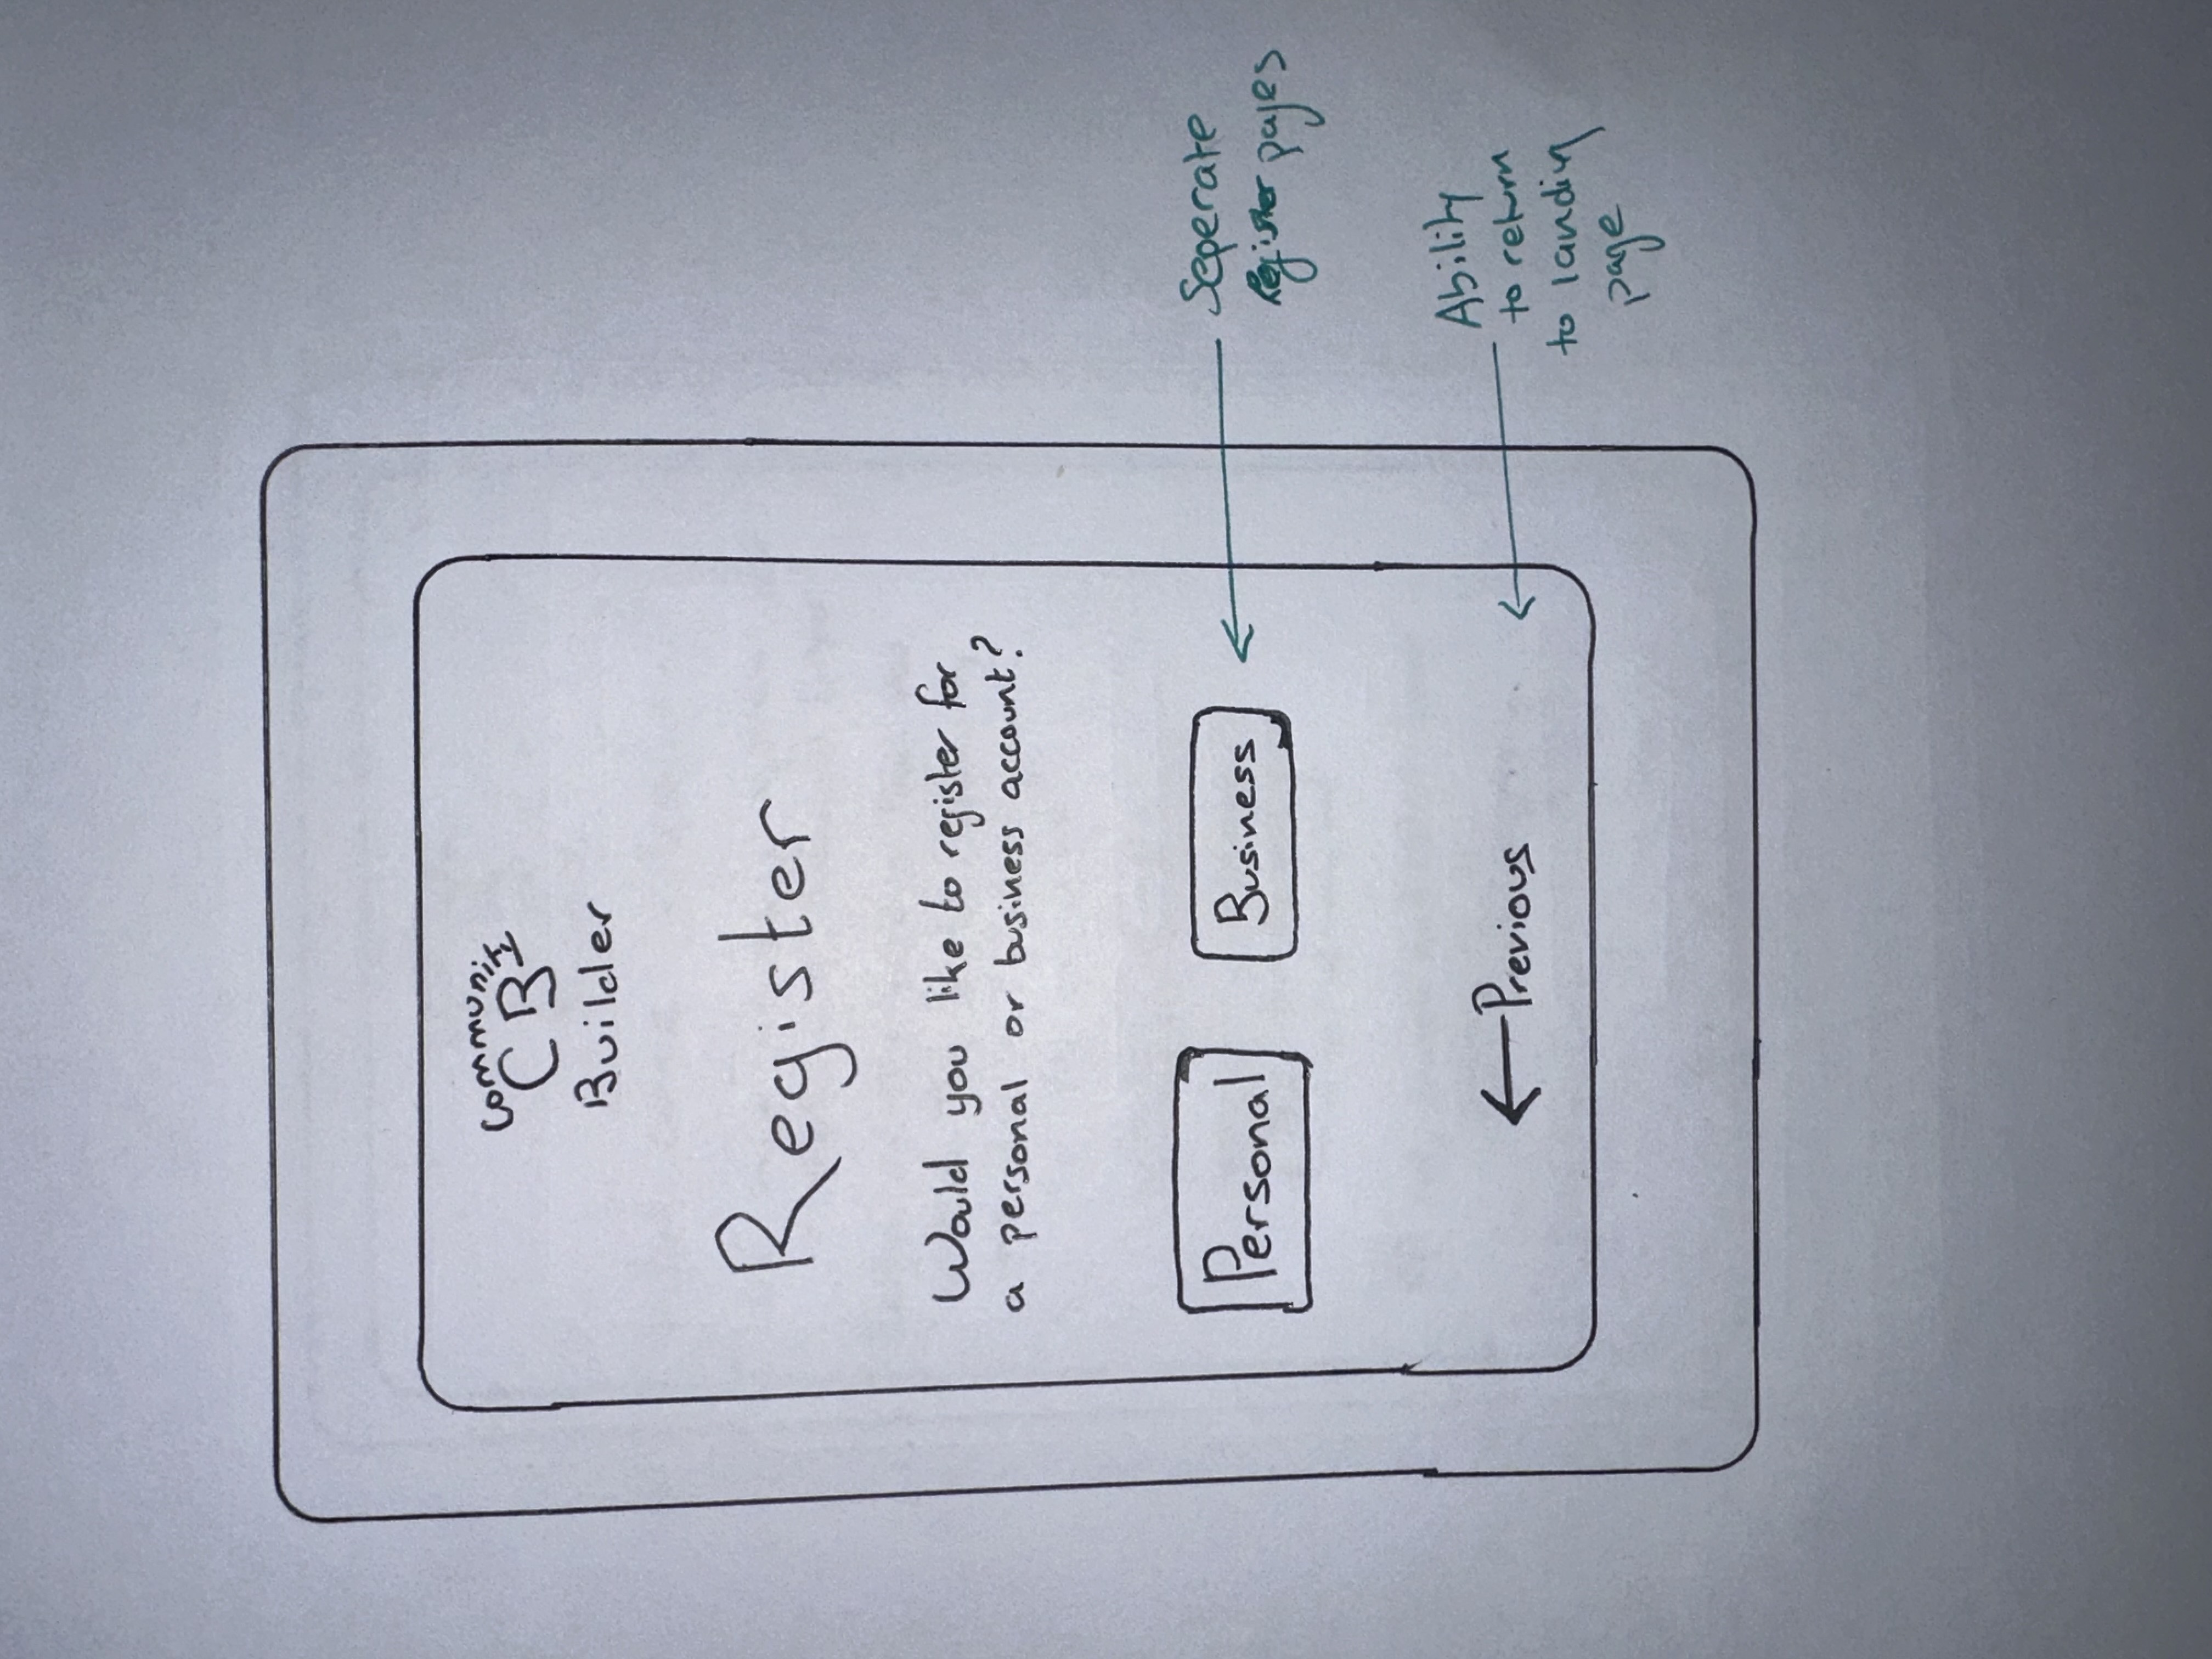 Community
CB
Builder
Register
Would you like to register for
a personal or business account?
Personal
Business
Seperate
Register pages
← Previous
Ability
to return
to landing
page